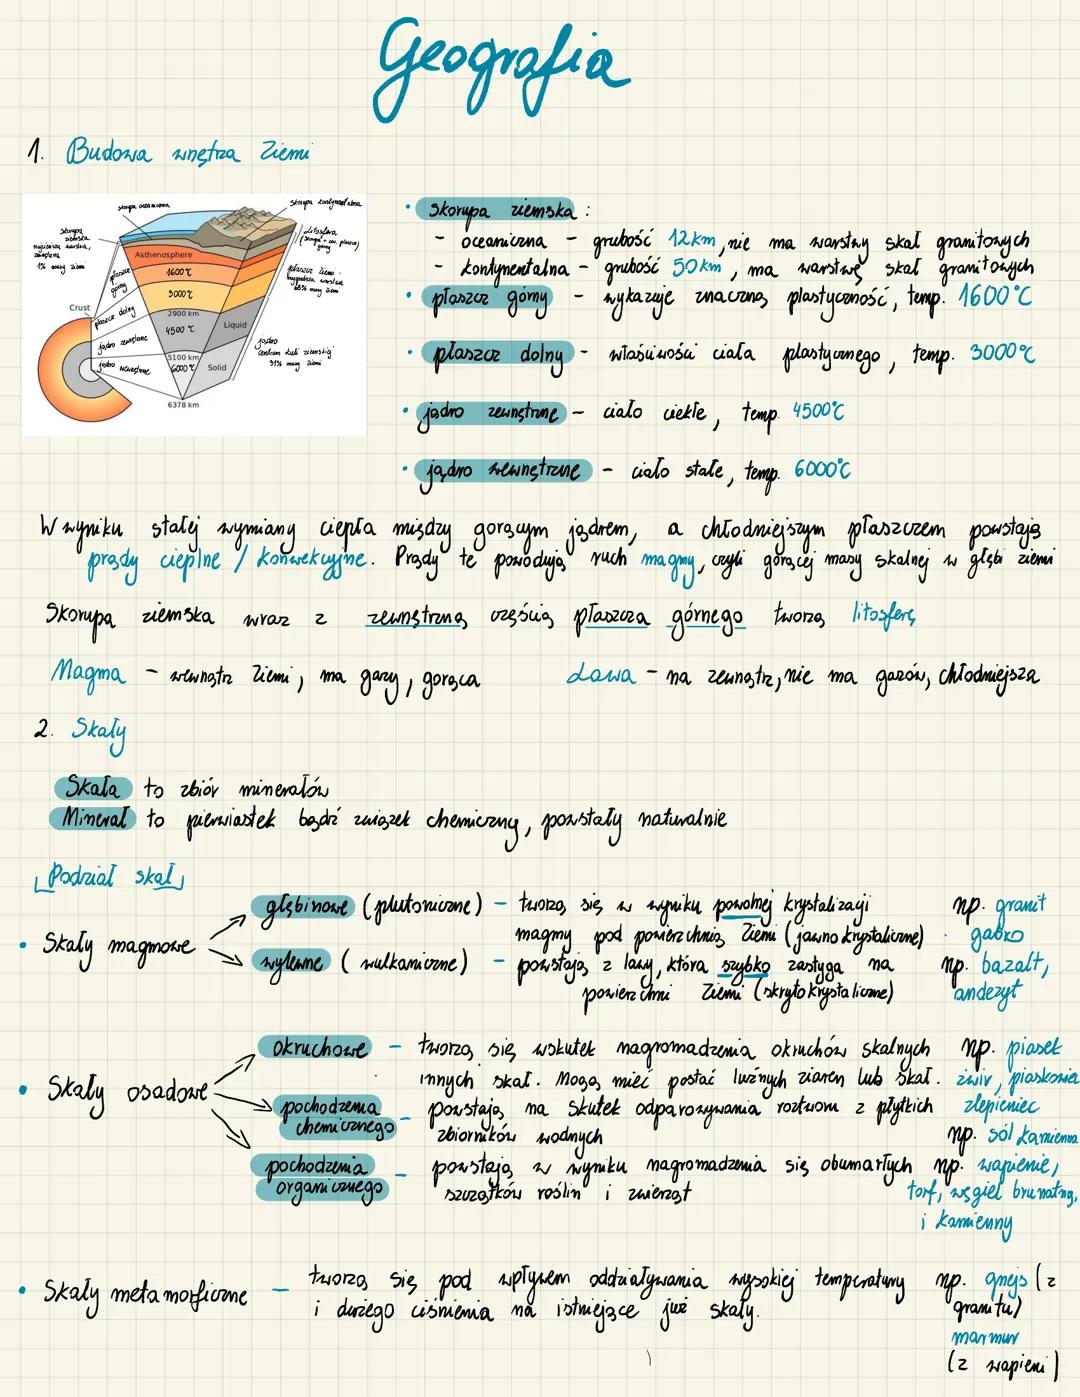 Geografia
1. Budowa wnętrza Ziemi
skorupa oceaniczna
skorupa kontynentalna
skorupa
ziemska
najcieńsza warstwa,
zewnętrzna
1% masy ziemi
Litosfera
płaszcz
górny
płaszcz ziemi -
największa warstwa
68% masy ziemi
Asthenosphere
1600°C
3000°C
2900 km
4500°C
Liquid
Crust
płaszcz dolny
jądro zewnętrzne
jądro wewnętrzne
5100 km
6000°C
Solid
6378 km
jądro
centrum kuli ziemskiej
31% masy ziemi
• skorupa ziemska :
- oceaniczna - grubość 12km, nie ma warstwy skał granitowych
- kontynentalna - grubość 50km, ma warstwę skał granitowych
• płaszcz górny - wykazuje znaczną plastyczność, temp. 1600°C
• płaszcz dolny - właściwości ciała plastycznego, temp. 3000°C
• jądro zewnętrzne - ciało ciekłe, temp. 4500°C
• jądro wewnętrzne - ciało stałe, temp. 6000°C
W wyniku stałej wymiany ciepła między gorącym jądrem, a chłodniejszym płaszczem powstają
prądy cieplne / konwekcyjne. Prądy te powodują ruch magmy, czyli gorącej masy skalnej w głębi ziemi
Skorupa ziemska wraz z zewnętrzną częścią płaszcza górnego tworzą litosferę
Magma - wewnątrz Ziemi, ma gazy, gorąca
Lawa - na zewnątrz, nie ma gazów, chłodniejsza
2. Skały
Skała to zbiór minerałów
Minerał to pierwiastek bądź związek chemiczny, powstały naturalnie
Podział skał
• Skały magmowe
głębinowe (plutoniczne) - tworzą się w wyniku powolnej krystalizacji np. granit
magmy pod powierzchnią Ziemi (jawnokrystaliczne) gabro
wylewne (wulkaniczne) - powstają z lawy, która szybko zastyga na np. bazalt,
powierzchni Ziemi (skrytokrystaliczne) andezyt
• Skały osadowe
okruchowe - tworzą się wskutek nagromadzenia okruchów skalnych np. piasek
innych skał. Mogą mieć postać luźnych ziaren lub skał. żwir, piaskowiec
pochodzenia - powstają na skutek odparowywania roztworu z płytkich zlepieniec
chemicznego zbiorników wodnych np. sól kamienna
pochodzenia - powstają w wyniku nagromadzenia się obumarłych np. wapienie,
organicznego szczątków roślin i zwierząt torf, węgiel brunatny,
i kamienny
• Skały metamorficzne - tworzą się pod wpływem oddziaływania wysokiej temperatury np. gnejs (z
i dużego ciśnienia na istniejące już skały. granitu)
marmur
(z wapieni)